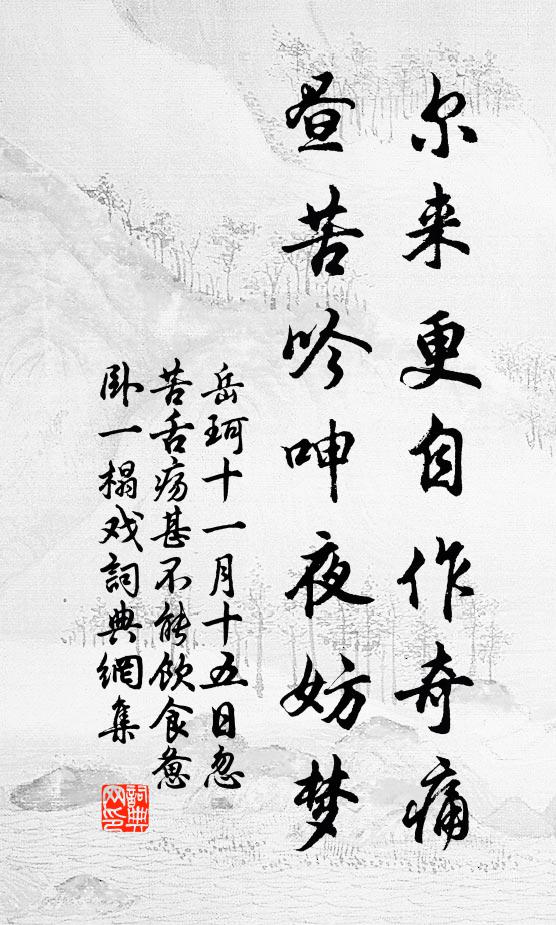 尔来更自作奇痛
昼苦吟呻夜妨梦
岳珂十一月十五日忽
苦舌疡甚不能饮食惫
卧一榻戏詞典網集
詞典网印